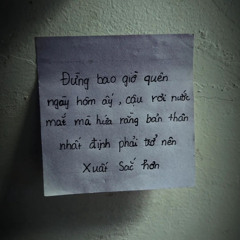 Đừng bao giờ quên
ngày hôm ấy, cậu rơi nước
mắt mà hứa rằng bản thân
nhất định phải trở nên
Xuất Sắc hơn